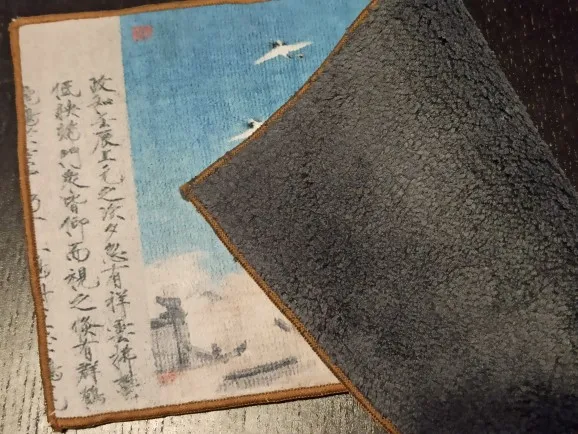 政和壬辰上元之次夕忽有祥雲拂鬱
低映端門衆皆仰而視之倐有群鶴